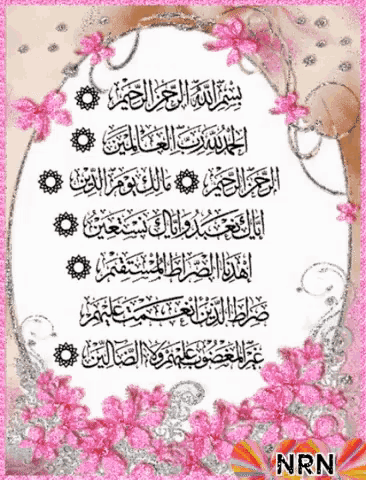 بِسْمِ اللَّهِ الرَّحْمَنِ الرَّحِيمِ
الْحَمْدُ لِلَّهِ رَبِّ الْعَالَمِينَ
الرَّحْمَنِ الرَّحِيمِ ۞ مَالِكِ يَوْمِ الدِّينِ
إِيَّاكَ نَعْبُدُ وَإِيَّاكَ نَسْتَعِينُ
اهْدِنَا الصِّرَاطَ الْمُسْتَقِيمَ
صِرَاطَ الَّذِينَ أَنْعَمْتَ عَلَيْهِمْ
غَيْرِ الْمَغْضُوبِ عَلَيْهِمْ وَلَا الضَّالِّينَ
NRN